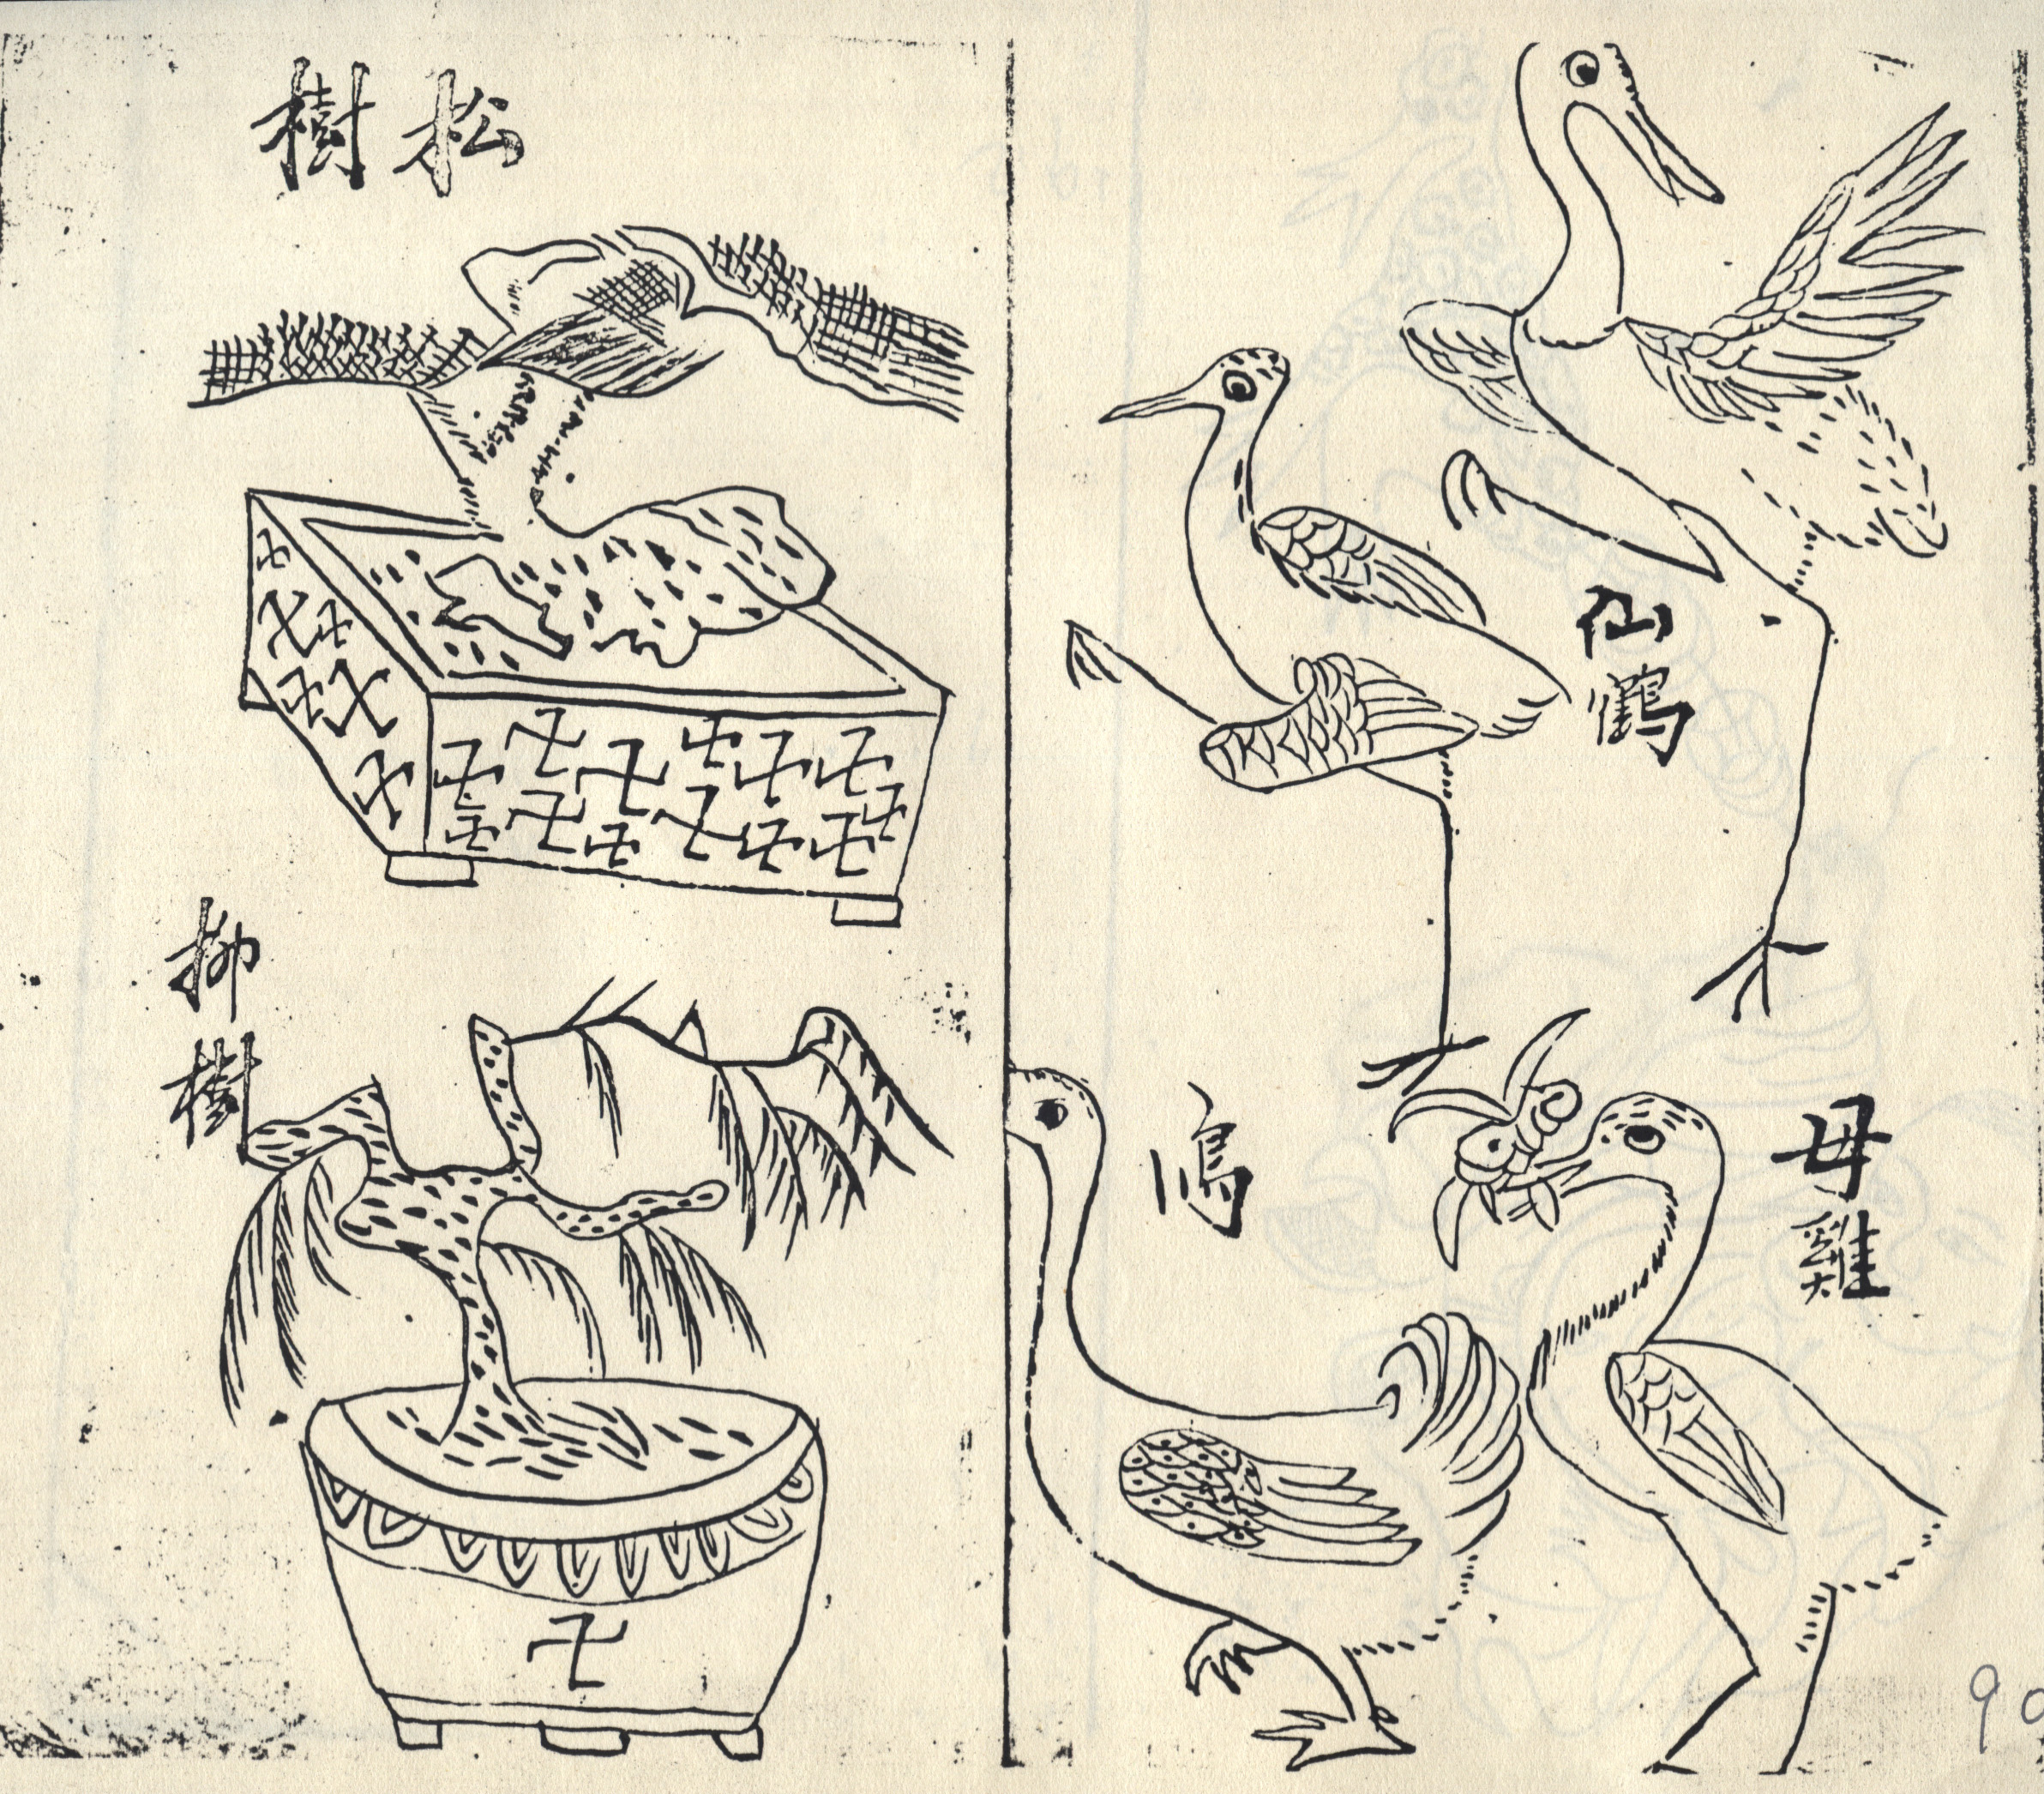 仙鶴
母雞
松樹
柳樹